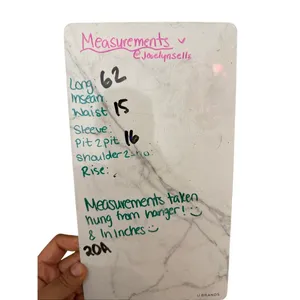 Measurements
@Jocelynsells
Long: 62
Inseam
Waist 15
Sleeve
Pit 2 pit 16
Shoulder-2-sho
Rise:
Measurements taken
hung from hanger!
& In Inches
20A